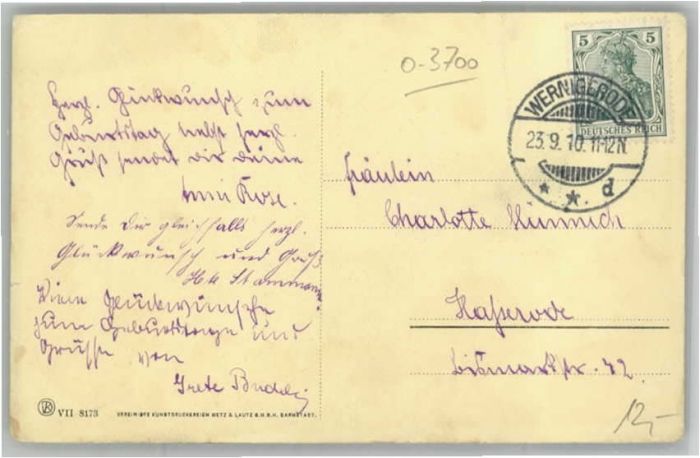 Herzl. Glückwunsch zum
Geburtstag nebst herzl.
Gruß sendet dir deine
Rose.
Sende Dir gleichfalls herzl.
Glückwunsch und Gruß
Viele Glückwünsche
zum Geburtstage und
Grüsse von
Grete
VII 8173
VEREINIGTE KUNSTDRUCKEREIEN METZ & LAUTZ G.M.B.H. DARMSTADT.
0-3700
5 5
DEUTSCHES REICH
WERNIGERODE
23.9.10.11-12N.
* * d
Fräulein
Charlotte
Hasserode
Bismarkstr. 42
12,-